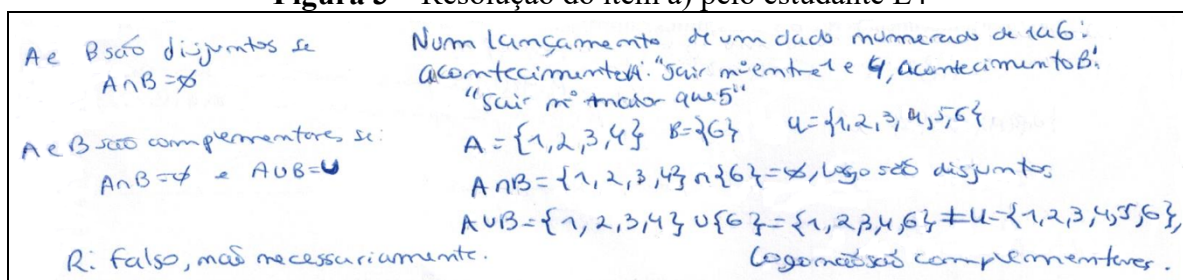 Figura 3 – Resolução do item a) pelo estudante E4
A e B são disjuntos se
A∩B=∅
A e B são complementares se:
A∩B=∅ e A∪B=U
Num lançamento de um dado numerado de 1 a 6:
acontecimento A: "Sair nº entre 1 e 4, acontecimento B:
"Sair nº maior que 5"
A = {1,2,3,4} B={6} U={1,2,3,4,5,6}
A∩B={1,2,3,4}∩{6}=∅, logo são disjuntos
A∪B={1,2,3,4}∪{6}={1,2,3,4,6}≠U={1,2,3,4,5,6},
Logo não são complementares.
R: Falso, não necessariamente.